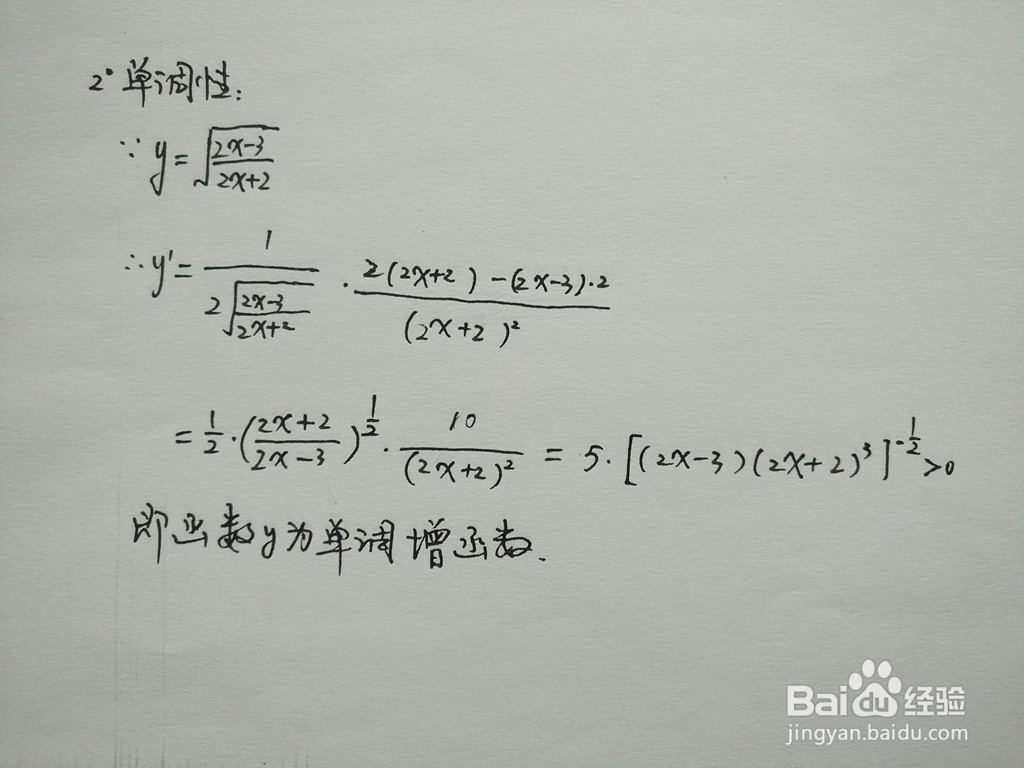 2° 单调性:
∵ y = √((2x-3)/(2x+2))
∴ y' = 1/(2√((2x-3)/(2x+2))) · (2(2x+2) - (2x-3)·2)/(2x+2)²
= 1/2 · ((2x+2)/(2x-3))^(1/2) · 10/(2x+2)² = 5·[(2x-3)(2x+2)³]^(-1/2) >0
即函数y为单调增函数.
Bai 经验
jingyan.baidu.com